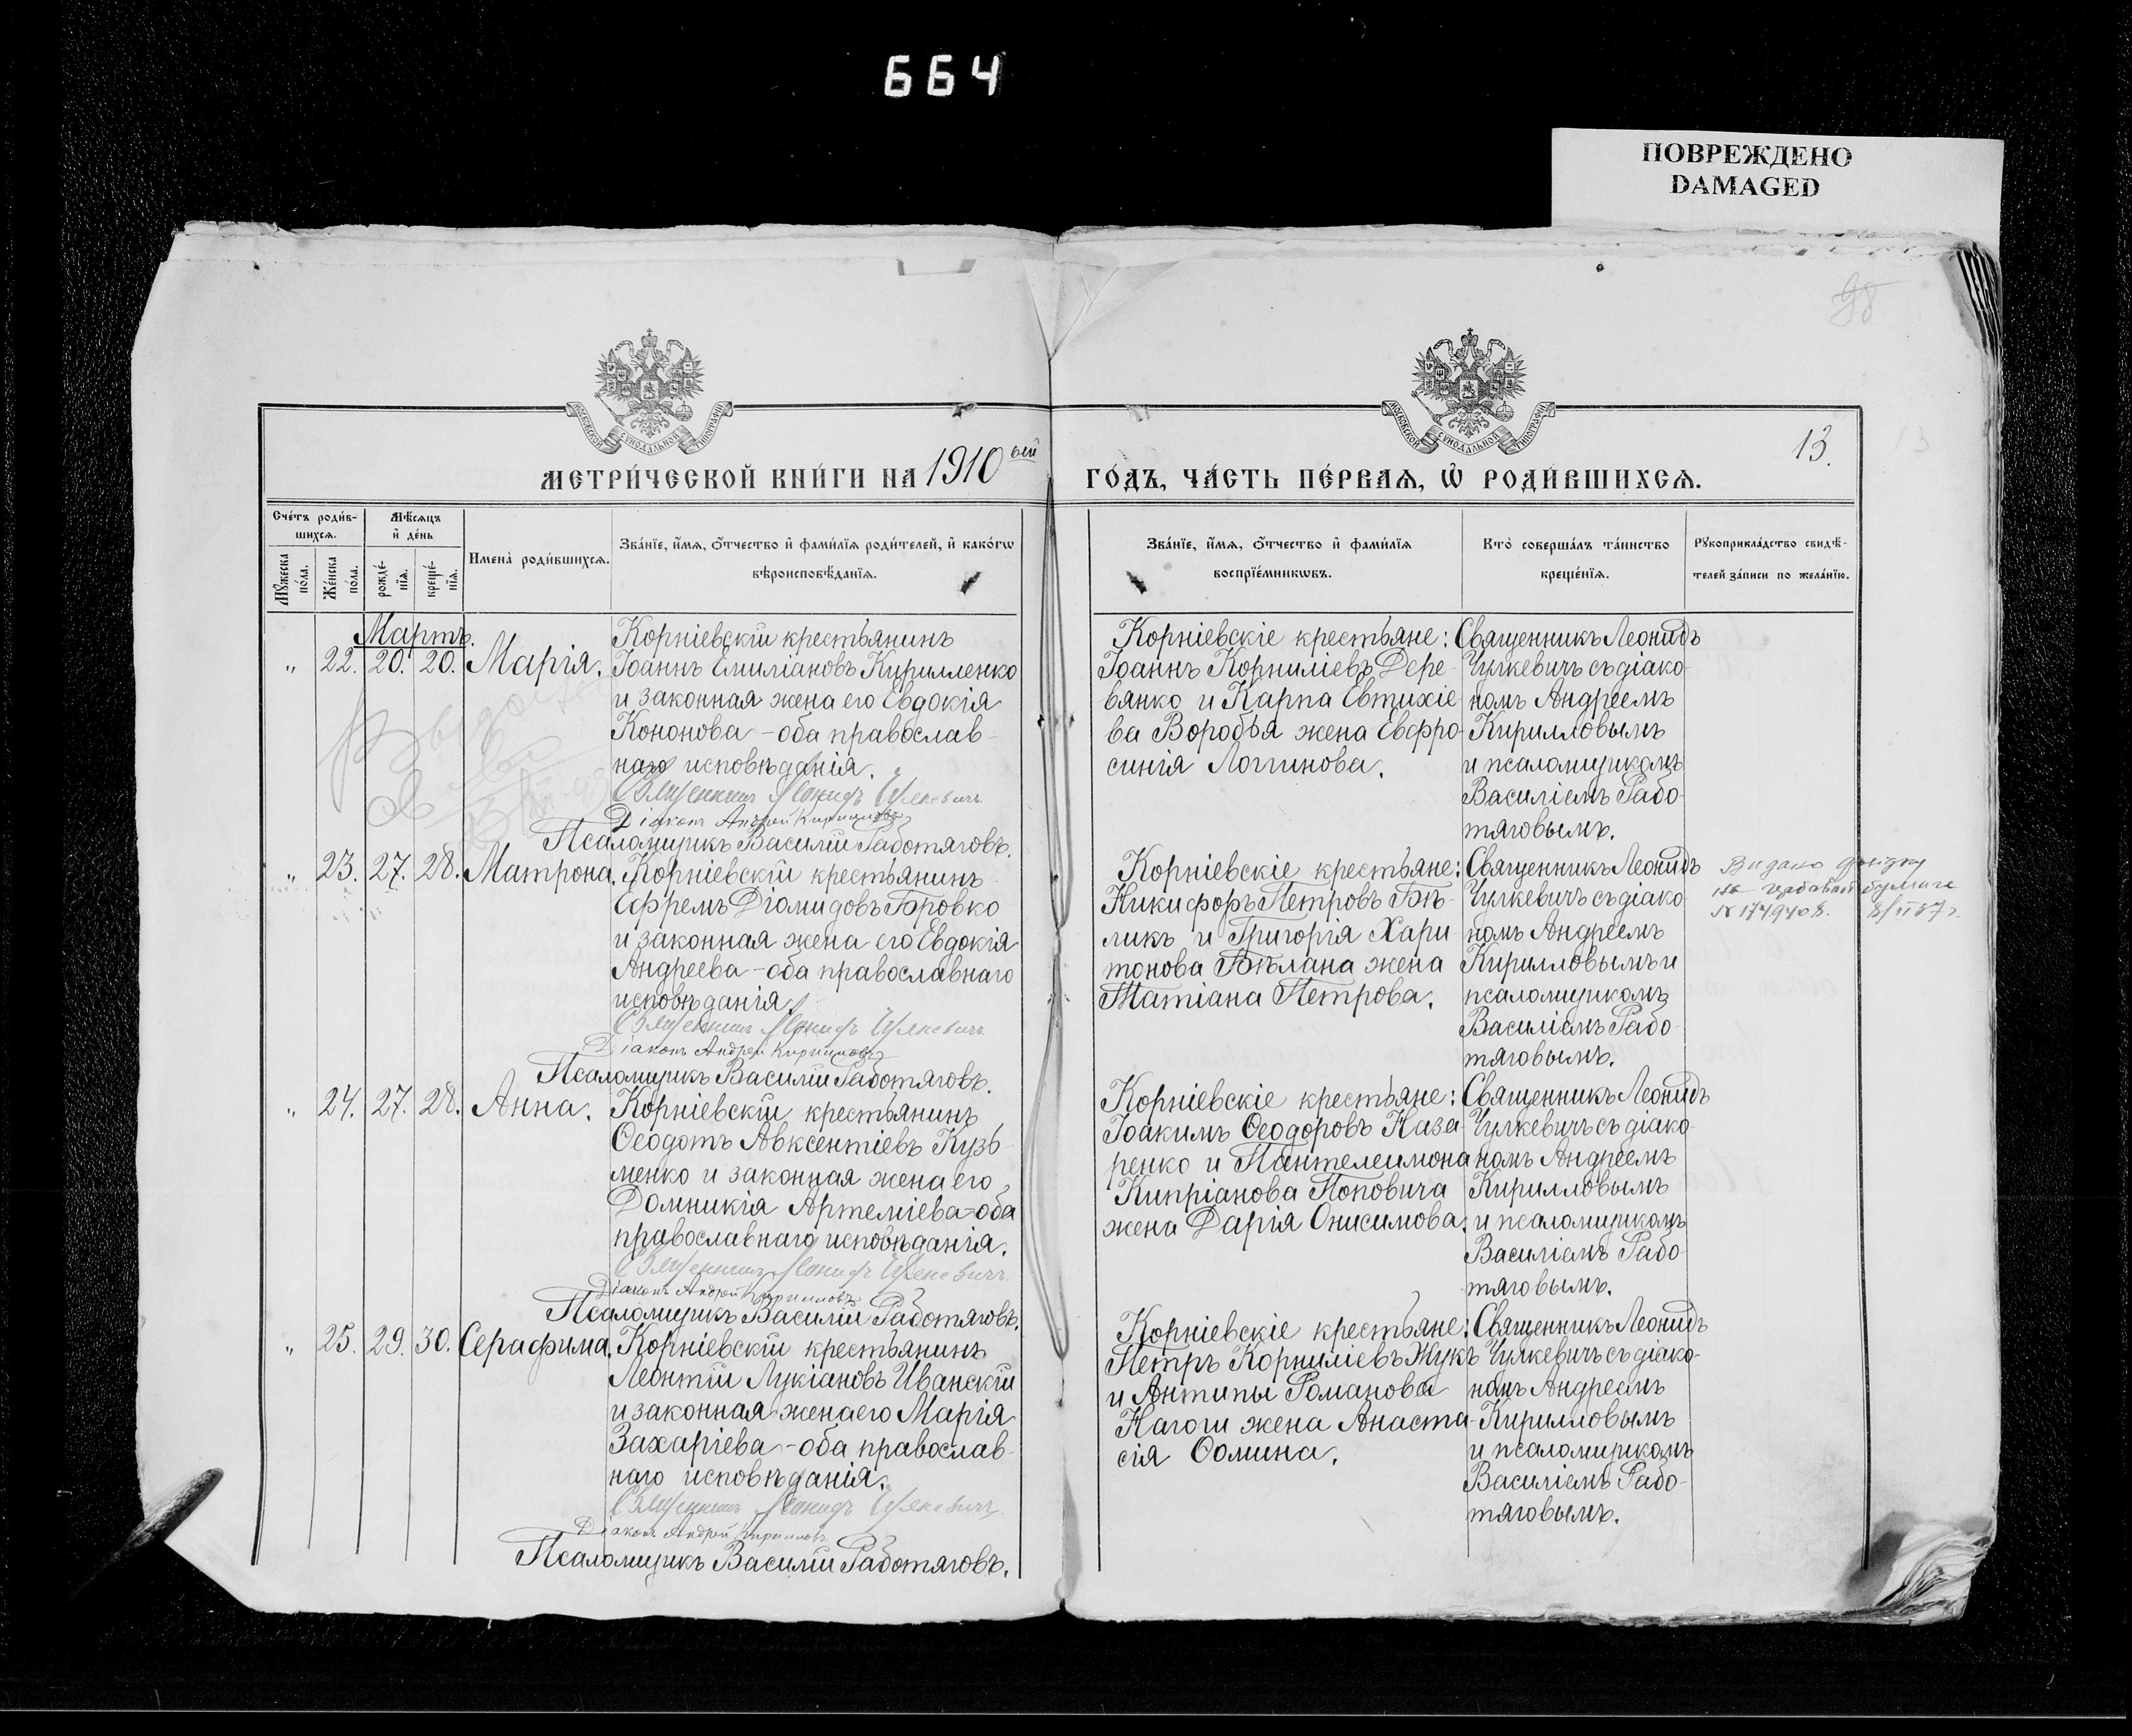 664
ПОВРЕЖДЕНО
DAMAGED
98
МОСКОВСКОЙ СѴНОДАЛЬНОЙ ТИПОГРАФІИ
МОСКОВСКОЙ СѴНОДАЛЬНОЙ ТИПОГРАФІИ
13.
МЕТРИ́ЧЕСКОЙ КНИ́ГИ НА 1910ый
ГО́ДЪ, ЧА́СТЬ ПЕ́РВАѦ, Ѡ҆ РОДИ́ВШИХСѦ.
Сче́тъ роди́в-
шихсѧ.
Мꙋ́жеска по́ла.
Же́нска по́ла.
Мѣ́сѧцъ
и҆ де́нь
рожде́-нїѧ.
креще́-нїѧ.
Имена̀ роди́вшихсѧ.
Зва́нїе, и҆́мѧ, о҆́тчество и҆ фами́лїѧ роди́телей, и҆ како́гѡ
вѣроисповѣ́данїѧ.
Зва́нїе, и҆́мѧ, о҆́тчество и҆ фами́лїѧ
воспрїе́мникѡвъ.
Кто̀ соверша́лъ та́инство
креще́нїѧ.
Рꙋкоприкла́дство свидѣ́-
телей за́писи по жела́нїю.
Мартъ.
„ 22. 20. 20. Марія.
Корніевскій крестьянинъ
Іоаннъ Емиліановъ Кирилленко
и законная жена его Евдокія
Кононова - оба православ-
наго исповѣданія.
Священникъ Леонидъ Чулкевичъ
Діаконъ Андрей Кирилловъ
Псаломщикъ Василій Работяговъ.
Корніевскіе крестьяне:
Іоаннъ Корниліевъ Дере-
вянко и Карпа Евтихіе-
ва Воробья жена Евфро-
синія Логгинова.
Священникъ Леонидъ
Чулкевичъ съ діако-
номъ Андреемъ
Кирилловымъ
и псаломщикомъ
Василіемъ Рабо-
тяговымъ.
„ 23. 27. 28. Матрона.
Корніевскій крестьянинъ
Ефремъ Діомидовъ Бровко
и законная жена его Евдокія
Андреева - оба православнаго
исповѣданія.
Священникъ Леонидъ Чулкевичъ
Діаконъ Андрей Кирилловъ
Псаломщикъ Василій Работяговъ.
Корніевскіе крестьяне:
Никифоръ Петровъ Бѣ-
ликъ и Григорія Хари-
тонова Бѣлана жена
Татіана Петрова.
Священникъ Леонидъ
Чулкевичъ съ діако-
номъ Андреемъ
Кирилловымъ и
псаломщикомъ
Василіемъ Рабо-
тяговымъ.
Видано довідку
на гербовой бумаге
№ 174940 8.
„ 24. 27. 28. Анна.
Корніевскій крестьянинъ
Ѳеодотъ Авксентіевъ Кузь-
менко и законная жена его
Домникія Артеміева - оба
православнаго исповѣданія.
Священникъ Леонидъ Чулкевичъ
Діаконъ Андрей Кирилловъ
Псаломщикъ Василій Работяговъ.
Корніевскіе крестьяне:
Іоакимъ Ѳеодоровъ Наза-
ренко и Пантелеимона
Кипріанова Поповича
жена Дарія Онисимова.
Священникъ Леонидъ
Чулкевичъ съ діако-
номъ Андреемъ
Кирилловымъ
и псаломщикомъ
Василіемъ Рабо-
тяговымъ.
„ 25. 29. 30. Серафима.
Корніевскій крестьянинъ
Леонтій Лукіановъ Иванскій
и законная жена его Марія
Захаріева - оба православ-
наго исповѣданія.
Священникъ Леонидъ Чулкевичъ
Діаконъ Андрей Кирилловъ
Псаломщикъ Василій Работяговъ.
Корніевскіе крестьяне:
Петръ Корниліевъ Жукъ
и Антипы Романова
Нагоги жена Анаста-
сія Ѳомина.
Священникъ Леонидъ
Чулкевичъ съ діако-
номъ Андреемъ
Кирилловымъ
и псаломщикомъ
Василіемъ Рабо-
тяговымъ.